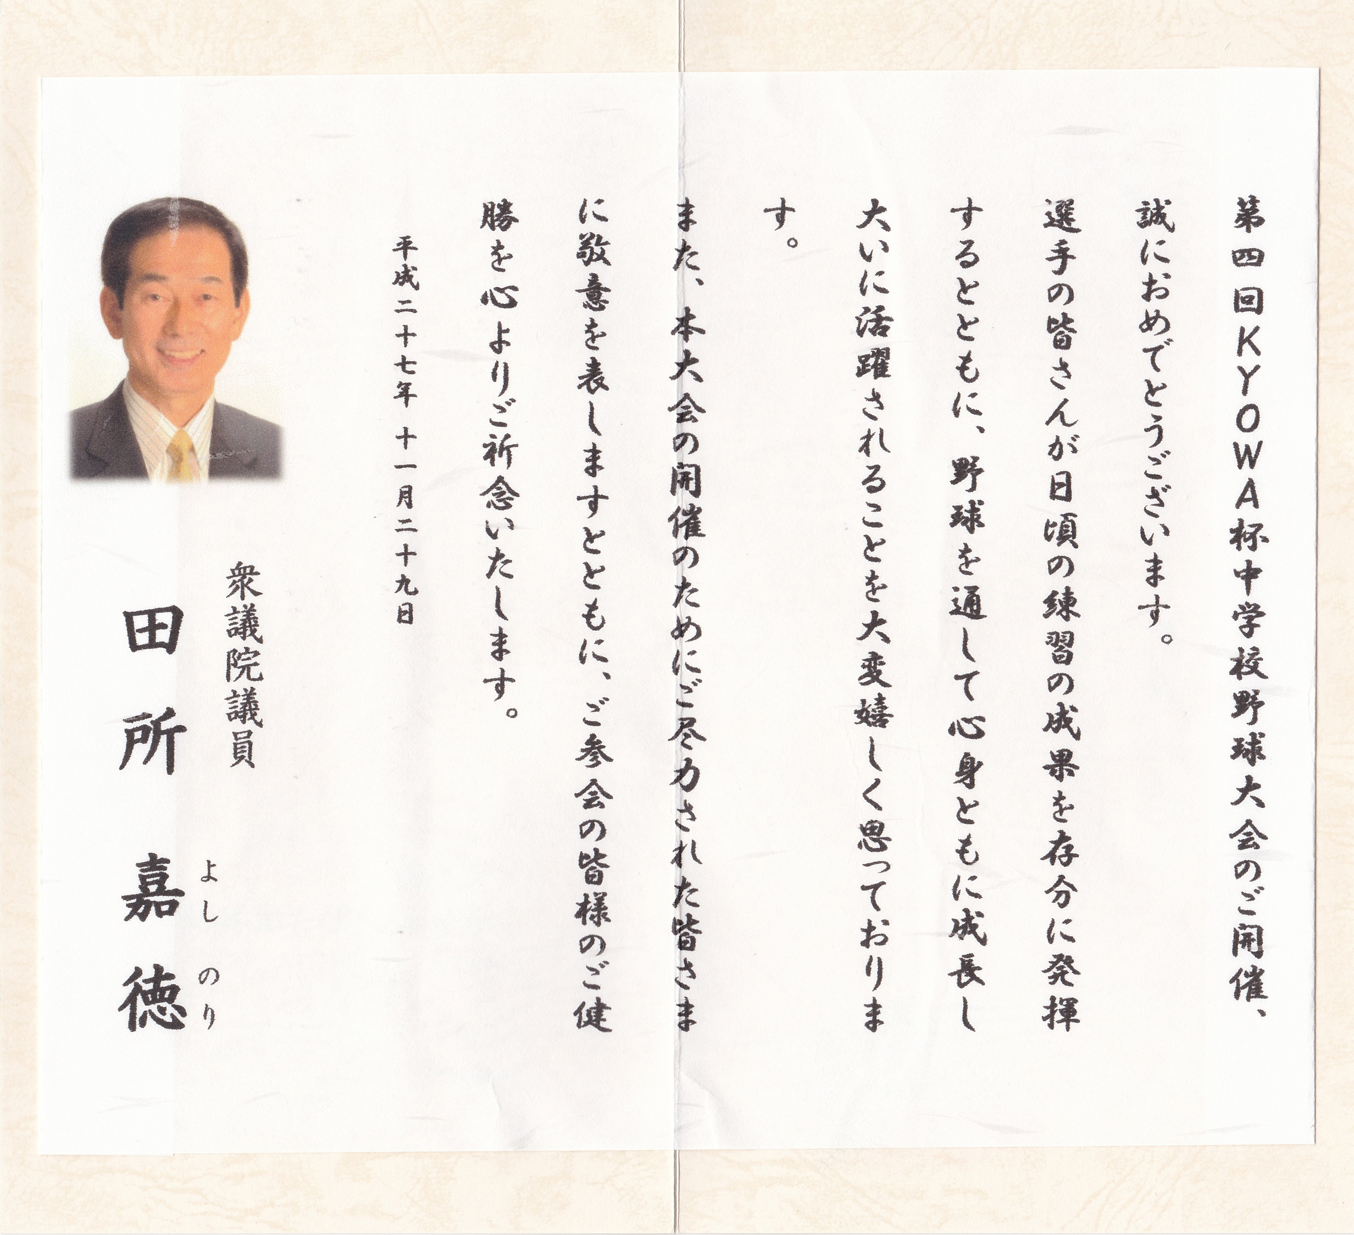 第四回KYOWA杯中学校野球大会のご開催、
誠におめでとうございます。
選手の皆さんが日頃の練習の成果を存分に発揮
するとともに、野球を通して心身ともに成長し
大いに活躍されることを大変嬉しく思っておりま
す。
また、本大会の開催のためにご尽力された皆さま
に敬意を表しますとともに、ご参会の皆様のご健
勝を心よりご祈念いたします。
平成二十七年 十一月二十九日
衆議院議員
田所 嘉徳
よし のり